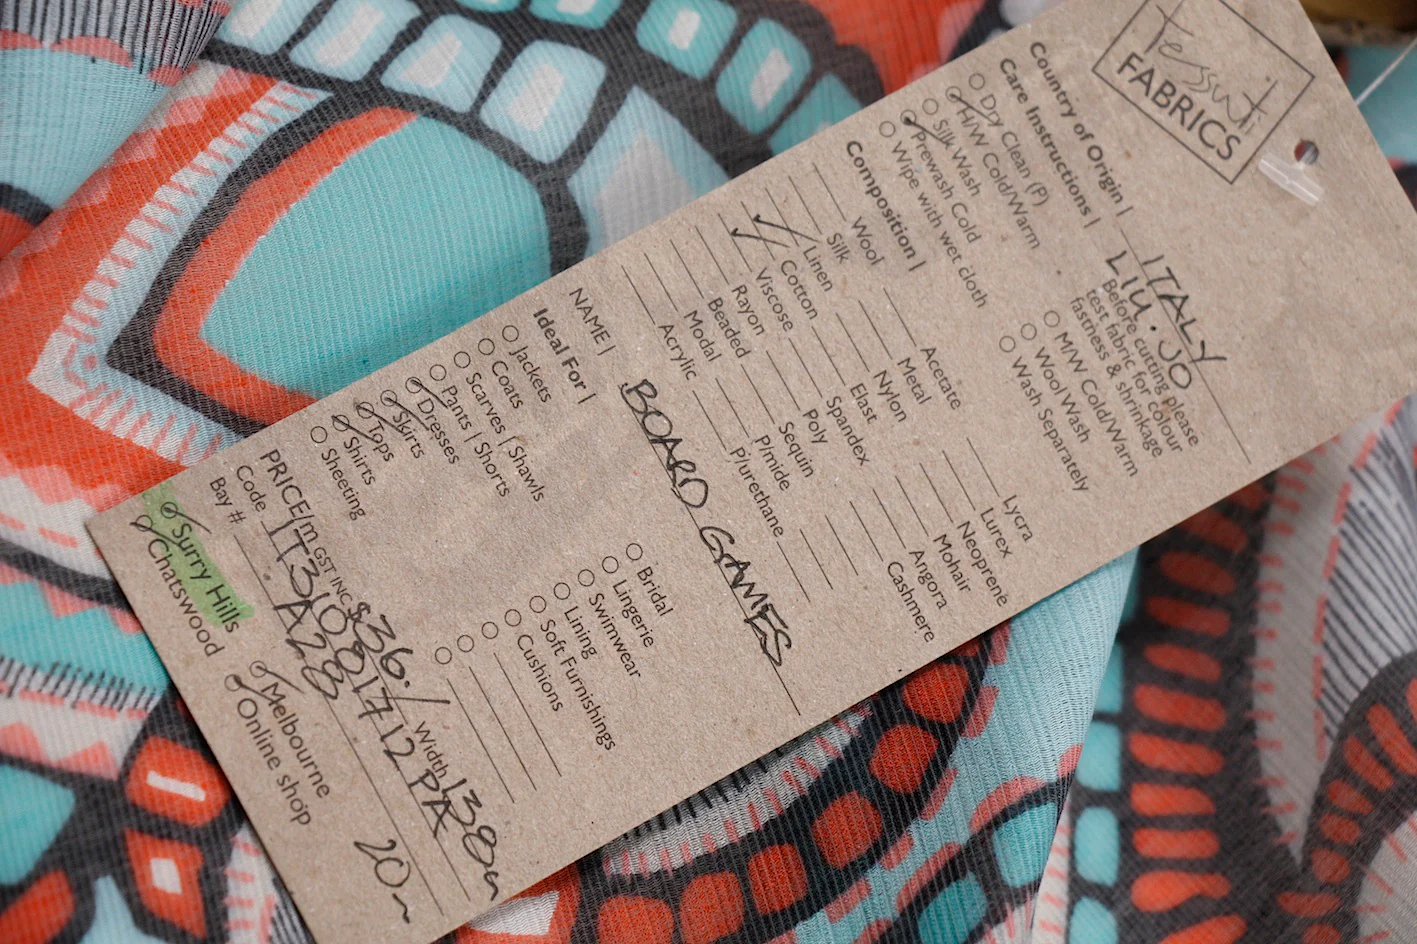 Tessuti
FABRICS
Country of Origin | ITALY
Care Instructions | LIU.JO
Dry Clean (P)
H/W Cold/Warm
Silk Wash
Prewash Cold
Wipe with wet cloth
Before cutting please
test fabric for colour
fastness & shrinkage
M/W Cold/Warm
Wool Wash
Wash Separately
Composition |
Wool
Silk
Linen
Cotton
Viscose
Rayon
Beaded
Modal
Acrylic
Acetate
Metal
Nylon
Elast
Spandex
Poly
Sequin
P/mide
P/urethane
Lycra
Lurex
Neoprene
Mohair
Angora
Cashmere
NAME | BOARD GAMES
Ideal For |
Jackets
Coats
Scarves | Shawls
Pants | Shorts
Dresses
Skirts
Tops
Shirts
Sheeting
Bridal
Lingerie
Swimwear
Lining
Soft Furnishings
Cushions
PRICE/m GST INC $36./ Width 138cm
Code 1T31081712 PA
Bay # A28
Surry Hills
Chatswood
Melbourne
Online shop
20m